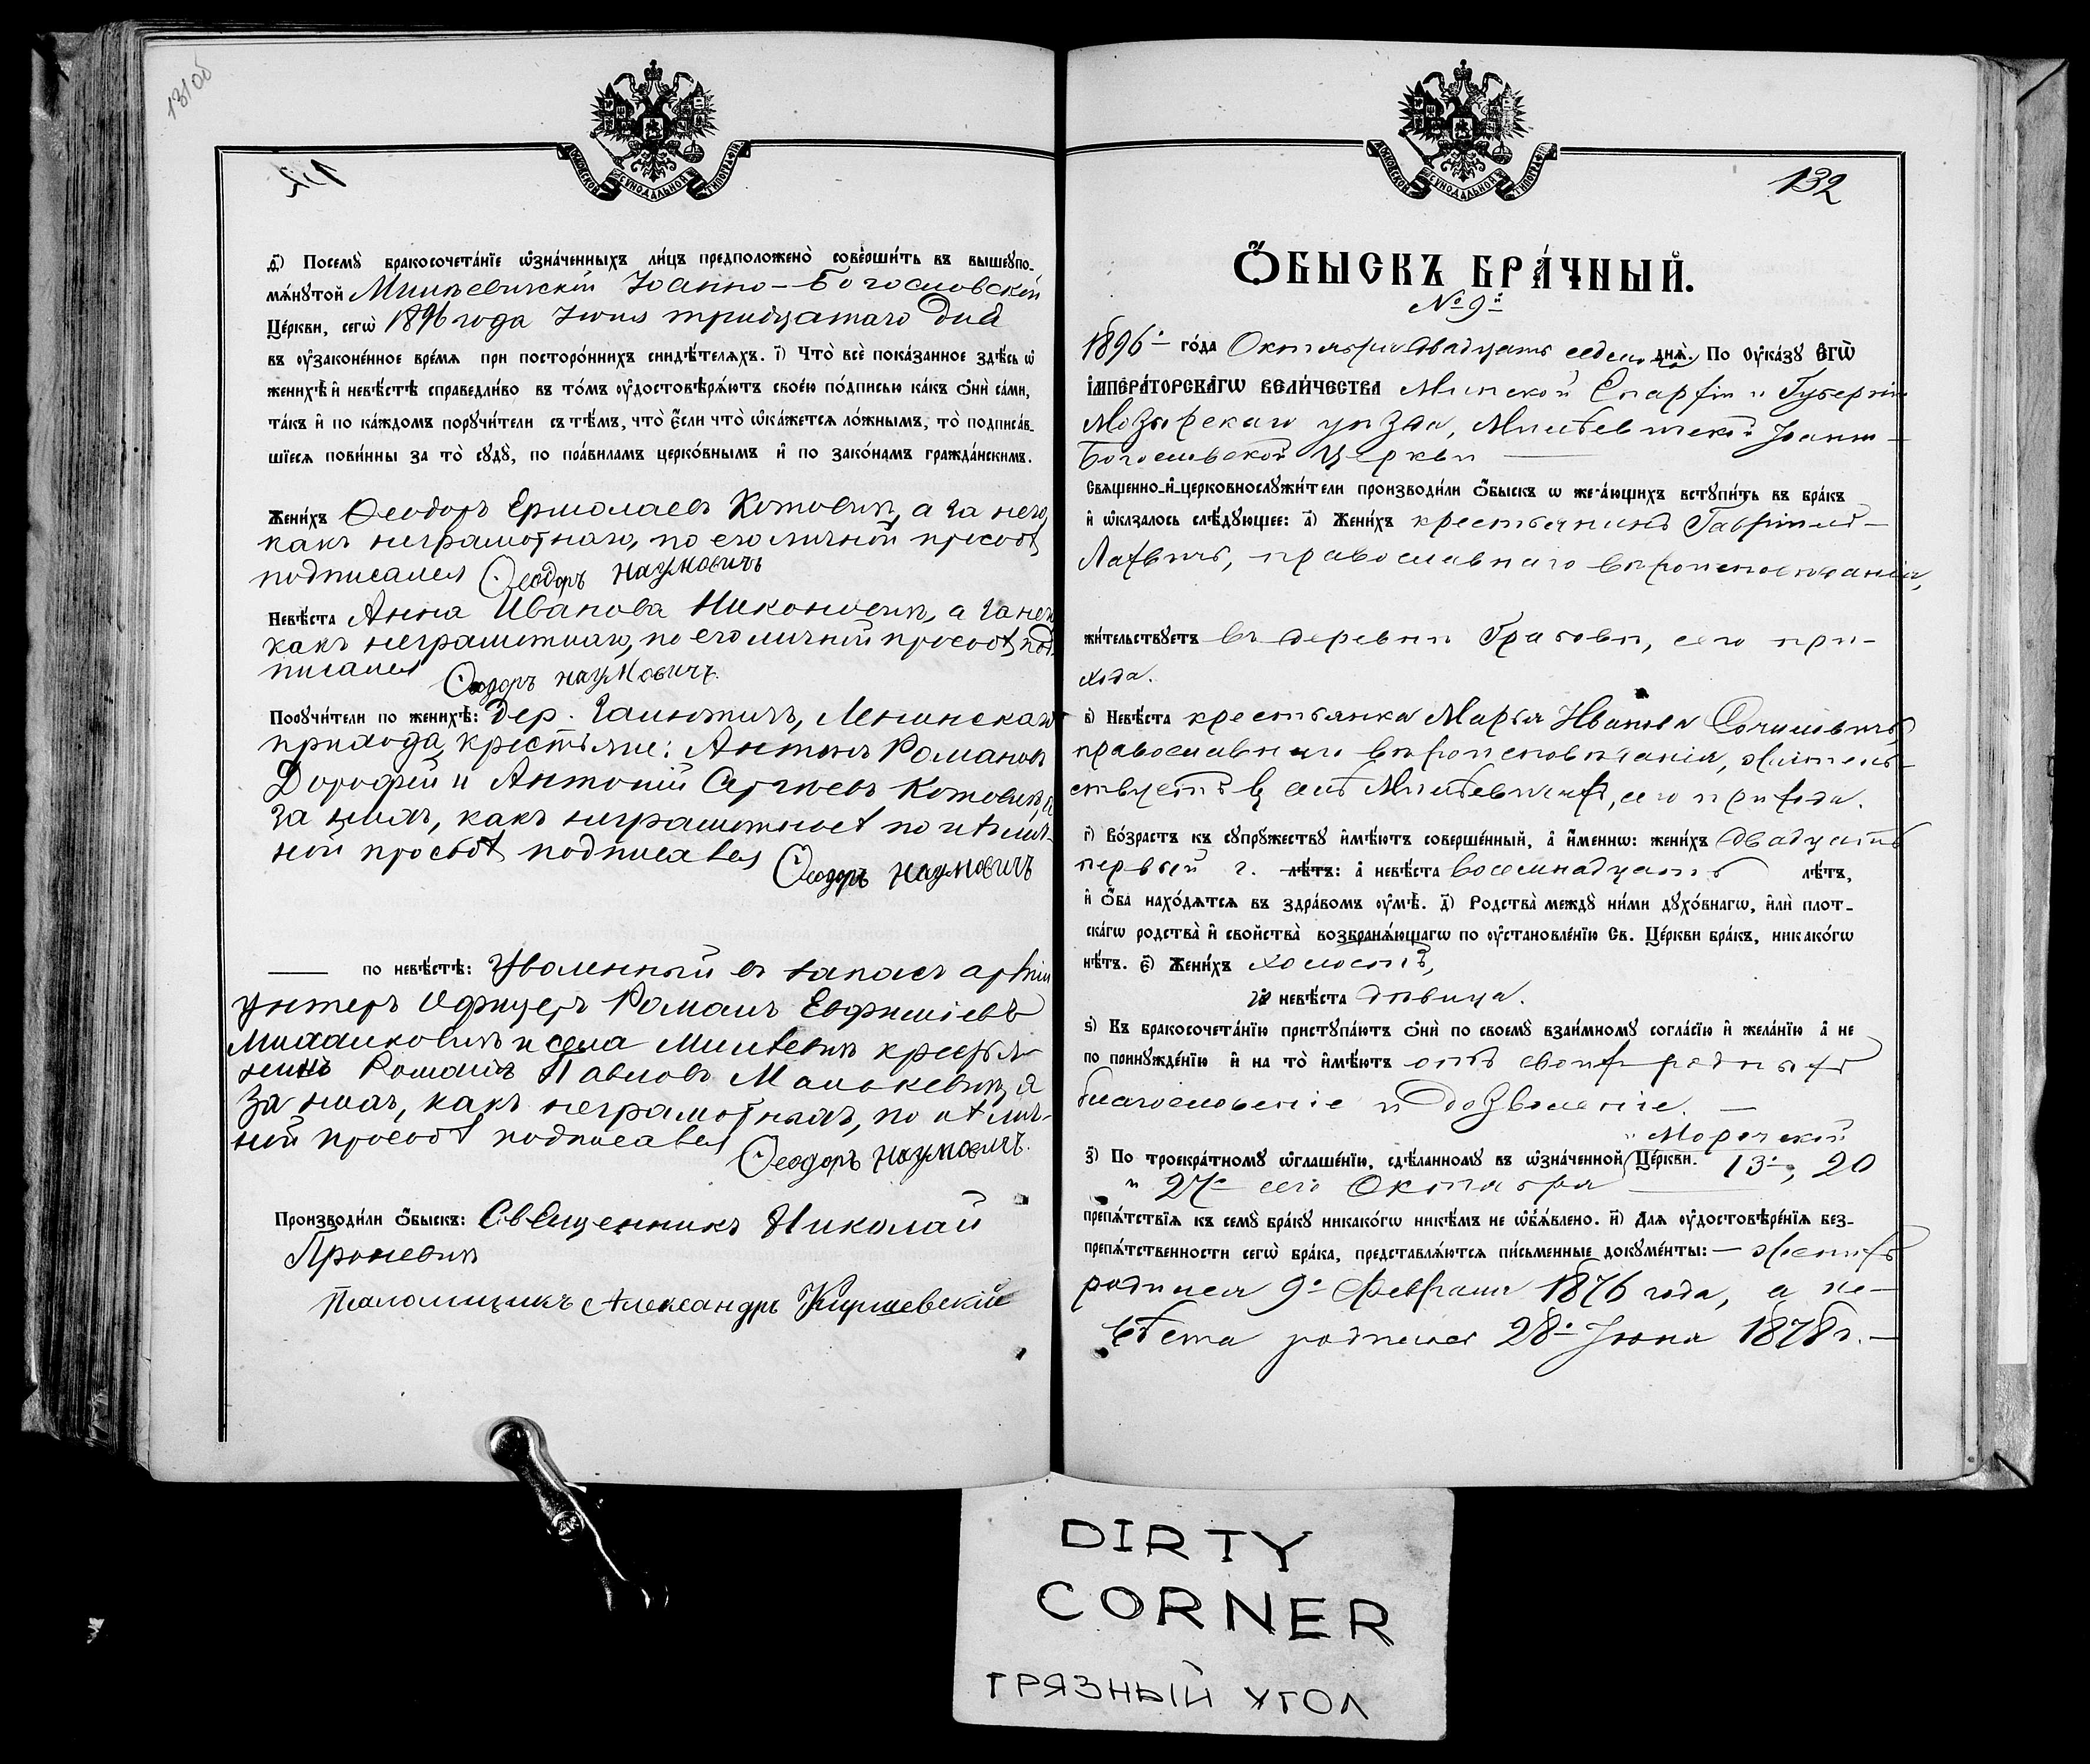 131об
МОСКОВСКОЙ СѴНОДАЛЬНОЙ ТИПОГРАФІИ
д҃) Посемꙋ̀ бракосочета́нїе ѡ҆зна́ченныхъ ли́цъ предположено̀ соверши́ть въ вышеупо-
мѧ́нꙋтой Милевичской Іоанно-Богословской
Це́ркви, сегѡ̀ 1896 года Іюня тридцатаго дня
въ ᲂу҆зако́ненное вре́мѧ при посторо́ннихъ свидѣ́телѧхъ. і҃) Что̀ всѐ пока́занное здѣ́сь ѡ҆
женихѣ̀ и҆ невѣ́стѣ справедли́во въ то́мъ ᲂу҆достовѣрѧ́ютъ свое́ю по́дписью ка́къ ѻ҆нѝ са́ми,
та́къ и҆ по ка́ждомъ порꙋчи́тели съ тѣ́мъ, что̀ є҆́сли что̀ ѡ҆ка́жетсѧ ло́жнымъ, то̀ подписа́в-
шїесѧ пови́нны за то̀ сꙋдꙋ̀, по пра́виламъ церко́внымъ и҆ по зако́намъ гражда́нскимъ.
Жени́хъ Ѳеодоръ Ермолаевъ Котовичъ, а за него,
какъ неграмотнаго, по его личной просьбѣ
подписался Ѳеодоръ Наумовичъ
Невѣ́ста Анна Иванова Никоновичъ, а за нея
какъ неграмотнаго, по его личной просьбѣ, под-
писался Ѳеодоръ Наумовичъ.
Порꙋчи́тели по женихѣ̀: Дер. Ленинскаго
прихода, крестьяне: Антонъ Романовъ
Дорофей и Антоній Сергіевъ Котовичъ, а
за нихъ, какъ неграмотныхъ по ихъ лич-
ной просьбѣ подписался Ѳеодоръ Наумовичъ
по невѣ́стѣ: Уволенный въ запасъ арміи
унтеръ офицеръ Романъ Евфиміевъ
Михалковичъ и села Милевичъ крестья-
нинъ Романъ Павловъ Малькевичъ, а
за нихъ, какъ неграмотныхъ, по ихъ лич-
ной просьбѣ подписался Ѳеодоръ Наумовичъ.
Производи́ли ѻ҆́быскъ: Священникъ Николай
Проневичъ
Псаломщикъ Александръ
МОСКОВСКОЙ СѴНОДАЛЬНОЙ ТИПОГРАФІИ
132
Ѻ҆́БЫСКЪ БРА́ЧНЫЙ.
№ 9й
1896го го́да Октября двадцать седьмаго днѧ̀. По ᲂу҆ка́зꙋ Є҆ГѠ̀
І҆МПЕРА́ТОРСКАГѠ ВЕЛИ́ЧЕСТВА Минской Епархіи и Губерніи
Мозырскаго уѣзда, Милевичской Іоанно-
Богословской Церкви
Свѧще́нно-и҆-церковнослꙋжи́тели производи́ли ѻ҆́быскъ ѡ҆ жела́ющихъ встꙋпи́ть въ бра́къ
и҆ ѡ҆каза́лось слѣ́дꙋющее: а҃) Жени́хъ крестьянинъ Гавріилъ
православнаго вѣроисповѣданія,
жи́тельствꙋетъ въ деревнѣ Грабовѣ, сего при-
хода.
в҃) Невѣ́ста крестьянка Марья Иванова
православнаго вѣроисповѣданія, житель-
ствуетъ въ селѣ Милевичахъ, сего прихода.
г҃) Во́зрастъ къ сꙋпрꙋ́жествꙋ и҆мѣ́ютъ соверше́нный, а҆ и҆́меннѡ: жени́хъ двадцать
первый г. лѣ́тъ: а҆ невѣ́ста восемнадцать лѣ́тъ,
и҆ ѻ҆́ба нахо́дѧтсѧ въ здра́вомъ ᲂу҆мѣ̀. д҃) Родства̀ междꙋ ни́ми дꙋхо́внагѡ, и҆лѝ плот-
ска́гѡ родства̀ и҆ сво́йства возбранѧ́ющагѡ по ᲂу҆становле́нїю Св. Це́ркви бра́къ, никако́гѡ
нѣ́тъ. є҃) Жени́хъ холостъ,
а҆ невѣ́ста дѣвица.
ѕ҃) Къ бракосочета́нїю пристꙋпа́ютъ ѻ҆нѝ по своемꙋ̀ взаи́мномꙋ согла́сїю и҆ жела́нїю а҆ не
по принꙋжде́нїю и҆ на то̀ и҆мѣ́ютъ отъ своихъ родныхъ
благословеніе и дозволеніе.
и Морочской
з҃) По троекра́тномꙋ ѡ҆глаше́нїю, сдѣ́ланномꙋ въ ѡ҆зна́ченной Це́ркви. 13го, 20
и 27го сего Октября
препѧ́тствїѧ къ семꙋ̀ бра́кꙋ никако́гѡ никѣ́мъ не ѡ҆б̾ѧ́влено. и҃) Длѧ ᲂу҆достовѣре́нїѧ без-
препѧ́тственности сегѡ̀ бра́ка, представлѧ́ютсѧ пи́сьменные докꙋме́нты: — женихъ
родился 9го Февраля 1876 года, а не-
вѣста родилась 28го Іюня 1878 г. —
DIRTY
CORNER
ГРЯЗНЫЙ УГОЛ